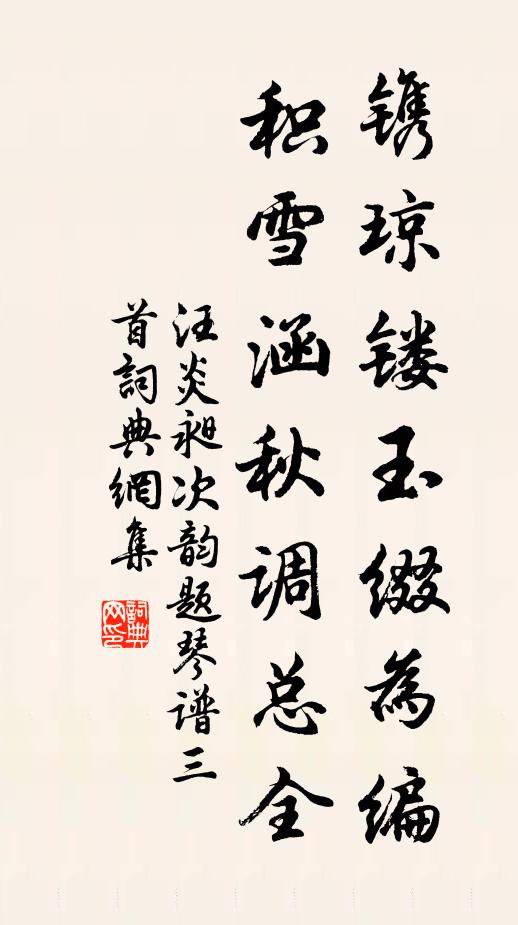 镌琼镂玉缀為编
积雪涵秋调总全
汪炎昶次韵题琴谱三
首詞典網集
詞典网印